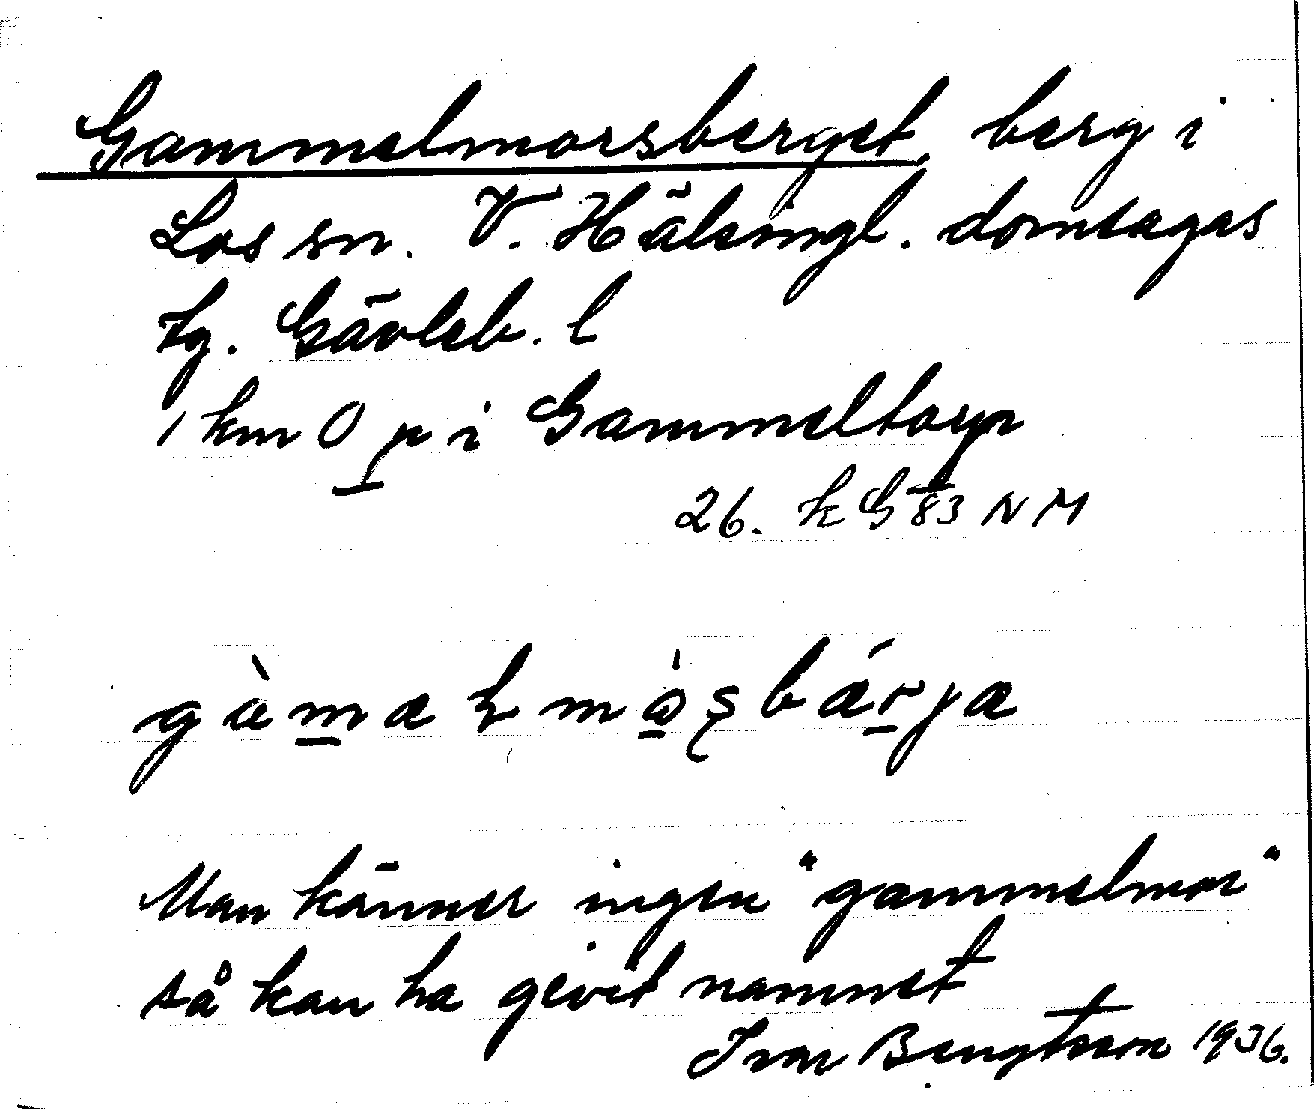 Gammelmorsberget, berg i
Los sn. V. Hälsingl. domsagas
tg. Gävleb. l
1 km O p i Gammeltorp
26. k G 83 N M
gàmæɫ mòşbárjæ
Man känner ingen "gammelmor"
så kan ha givit namnet
Ivar Bengtsson 1936.